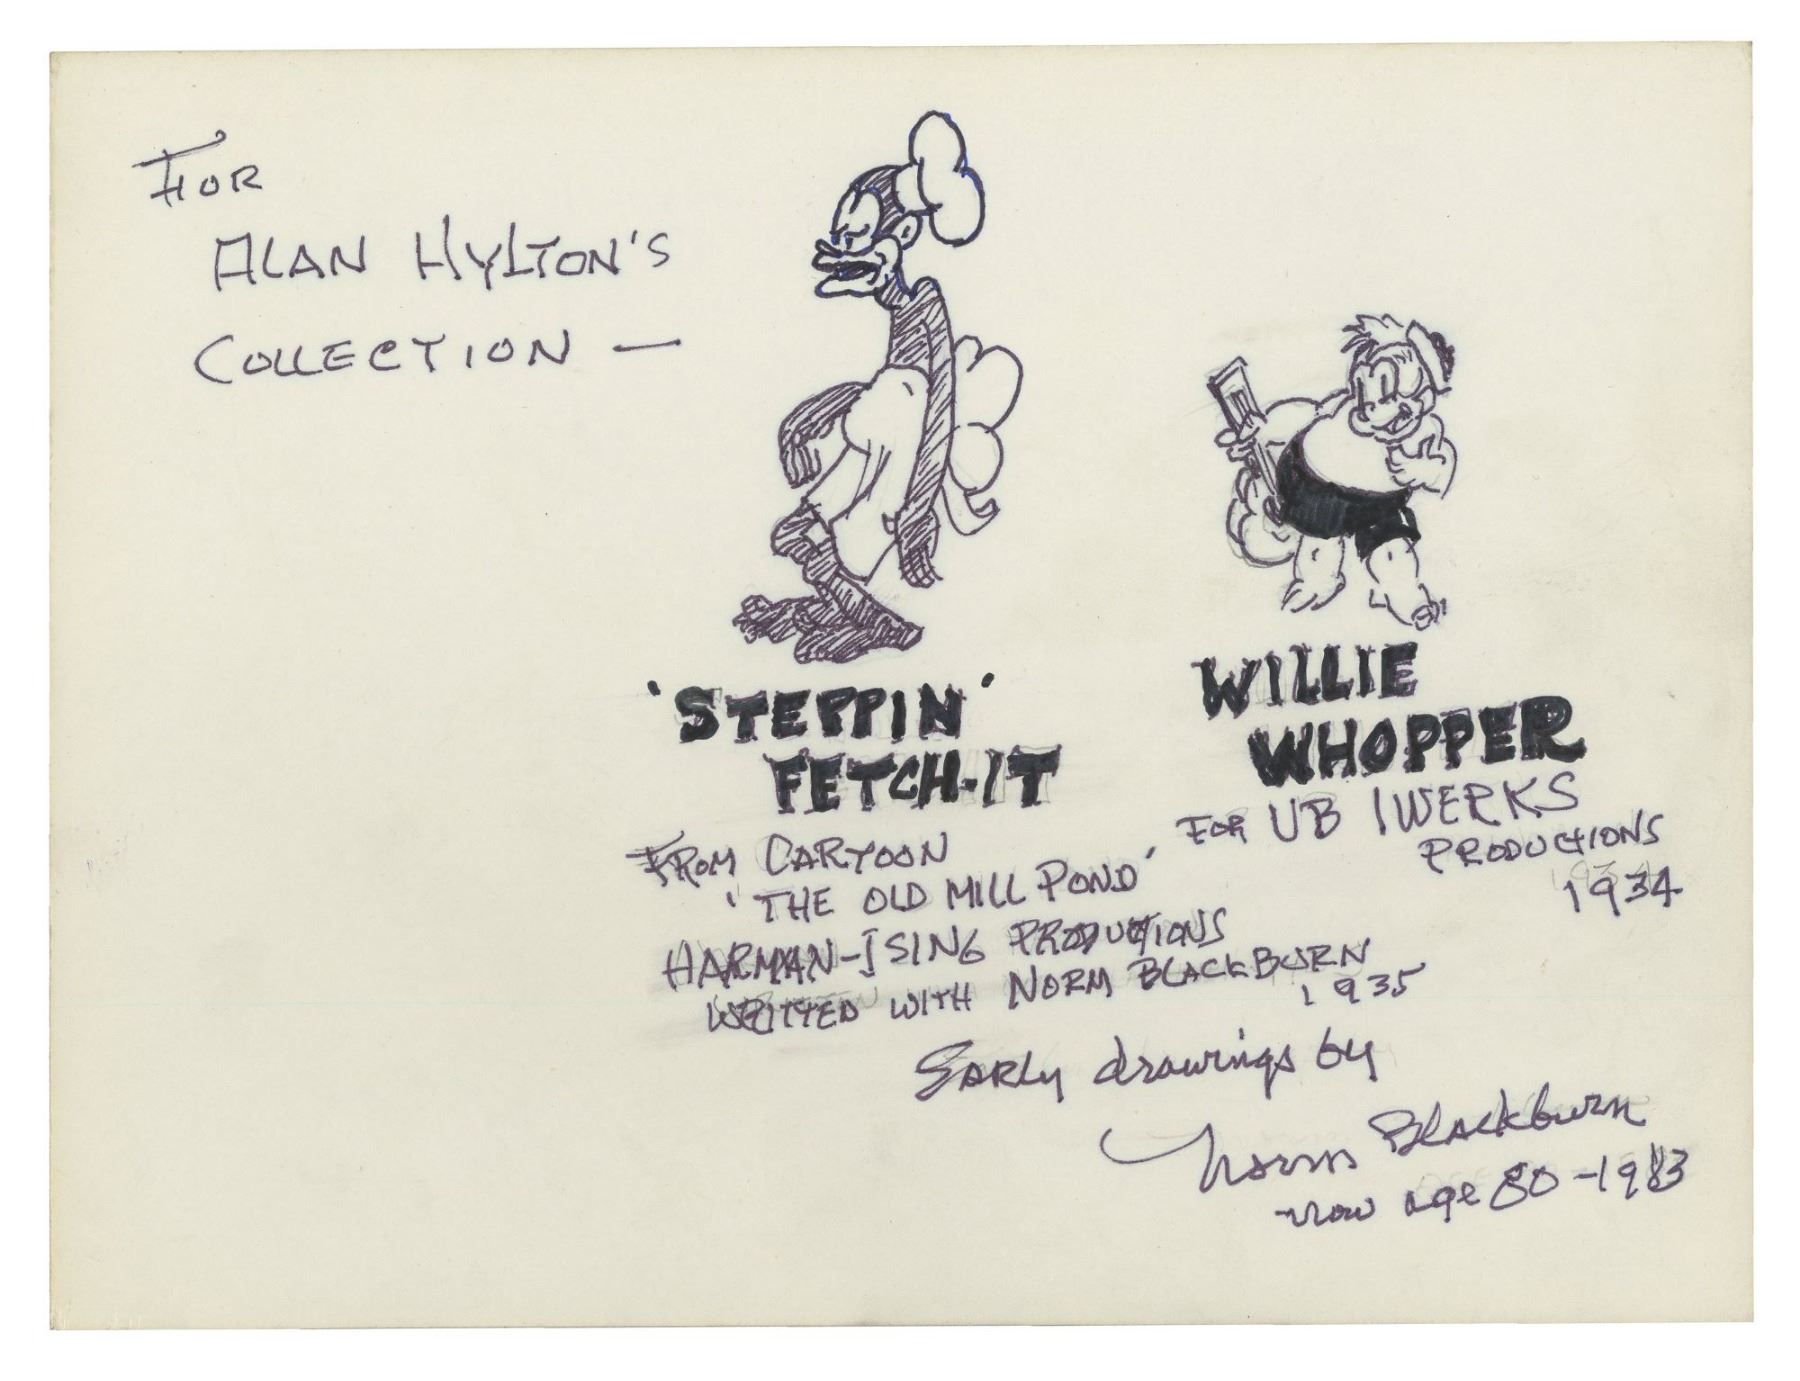 FOR
ALAN HYLTON'S
COLLECTION —
'STEPPIN'
FETCH-IT
FROM CARTOON
'THE OLD MILL POND'
HARMAN-ISING PRODUCTIONS
WRITTED WITH NORM BLACKBURN
1935
WILLIE
WHOPPER
FOR UB IWERKS
PRODUCTIONS
1934
Early drawings by
Norm Blackburn
now age 80 - 1983